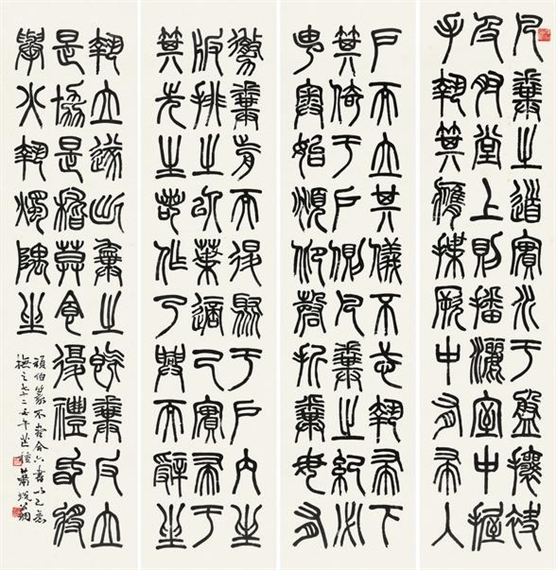 凡糞之道實水于盤攘袂
及肘堂上則播灑室中握
手執箕膺揲厥中有帚入
戶而立其儀不忒執帚下
箕倚于戶側凡糞之紀必
由奧始俯仰磬折糞毋有
徹糞前而退聚于戶內坐
板排之以葉適己實帚于
箕先生若作乃興而辭坐
執立遂出棄之既糞反立
是協是稽莫食復禮昏將
舉火執燭隅坐
頑伯篆不盡合六書以己意
橅之 蕭蛻